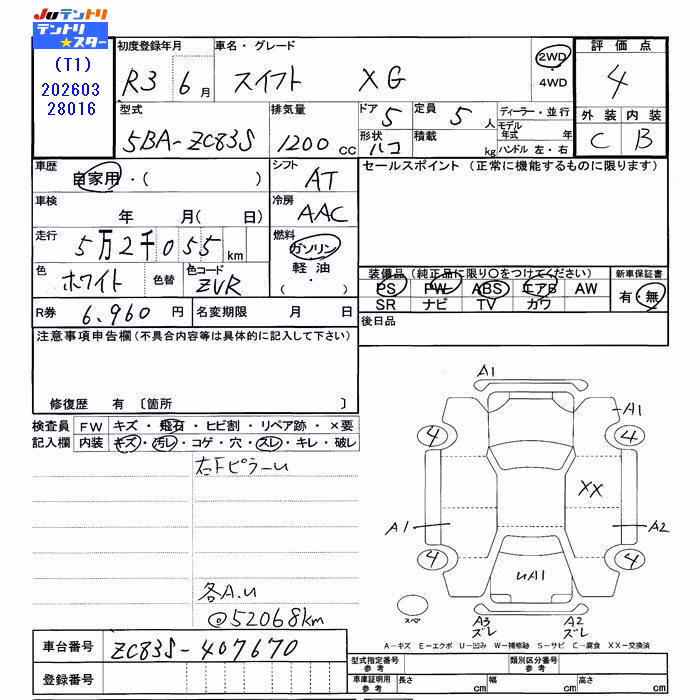 JUテントリ
テントリ
★スター
(T1)
202603
28016
初度登録年月 R3 6月
車名・グレード スイフト XG
2WD・4WD
評価点 4
型式 5BA-ZC83S
排気量 1200cc
ドア 5
形状 ハコ
定員 5人
積載 kg
ディーラー・並行
モデル年式 年
ハンドル 左・右
外装 C
内装 B
車歴 自家用・( )
シフト AT
セールスポイント (正常に機能するものに限ります)
車検 年 月( 日)
冷房 AAC
走行 5万2千055km
燃料 ガソリン・軽油・( )
色 ホワイト 色替
色コード ZVR
装備品(純正品に限り○をつけてください)
PS PW ABS エアB AW
SR ナビ TV カワ
新車保証書 有・無
R券 6,960円
名変期限 月 日
後日品
注意事項申告欄(不具合内容等は具体的に記入して下さい)
修復歴 有 〔箇所 〕
検査員記入欄
FW キズ・飛石・ヒビ割・リペア跡・×要
内装 キズ・汚レ・コゲ・穴・スレ・キレ・破レ
右Fピラーu
各A.u
@52068km
A1
A1
4
4
XX
A1
A2
4
4
uA1
スペア
A3 ズレ
A2 ズレ
A-キズ E-エクボ U-凹み W-補修跡 S-サビ C-腐食 XX-交換済
車台番号 ZC83S-407670
登録番号
型式指定番号 参考
類別区分番号 参考
車庫証明用 参考
長さ cm
幅 cm
高さ cm